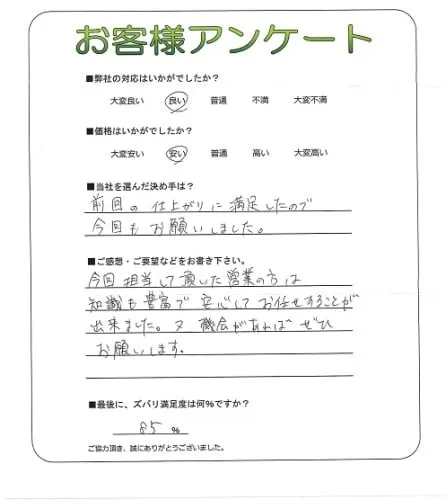 お客様アンケート
■弊社の対応はいかがでしたか?
大変良い 良い 普通 不満 大変不満
■価格はいかがでしたか?
大変安い 安い 普通 高い 大変高い
■当社を選んだ決め手は?
前回の仕上がりに満足したので
今回もお願いしました。
■ご感想・ご要望などをお書き下さい。
今回担当して頂いた営業の方は
知識も豊富で安心してお任せすることが
出来ました。又機会があればぜひ
お願いします。
■最後に、ズバリ満足度は何%ですか?
85 %
ご協力頂き、誠にありがとうございました。